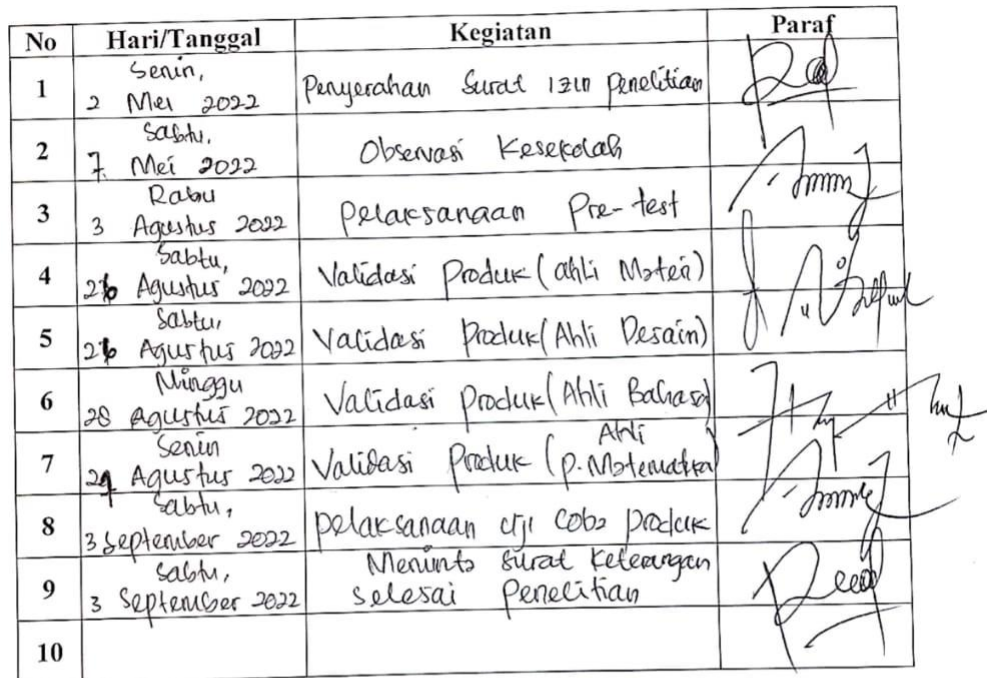 No Hari/Tanggal Kegiatan Paraf
1 Senin, 2 Mei 2022 Penyerahan Surat izin penelitian
2 Sabtu, 7 Mei 2022 Observasi Kesekolah
3 Rabu 3 Agustus 2022 Pelaksanaan Pre-test
4 Sabtu, 26 Agustus 2022 Validasi Produk (ahli Materi)
5 Sabtu, 26 Agustus 2022 Validasi Produk (Ahli Desain)
6 Minggu 28 Agustus 2022 Validasi produk (Ahli Bahasa)
7 Senin 29 Agustus 2022 Validasi Produk (Ahli p. Matematika)
8 Sabtu, 3 September 2022 pelaksanaan uji coba produk
9 Sabtu, 3 September 2022 Meminta surat keterangan selesai Penelitian
10